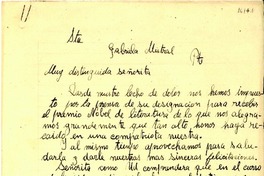 Sta
Gabriela Mistral
Pte
Muy distinguida señorita
Desde nuestro lecho de dolor nos hemos impuesto
por la prensa de su designación para recibir
el premio Nobel de literatura de lo que nos alegramos
grandemente que tan alto honor haya recaído
en una compatriota nuestra.
al mismo tiempo aprovechamos para saludarla
y darle nuestras mas sinceras felicitaciones.
Señorita como Ud comprenderá que en el curso